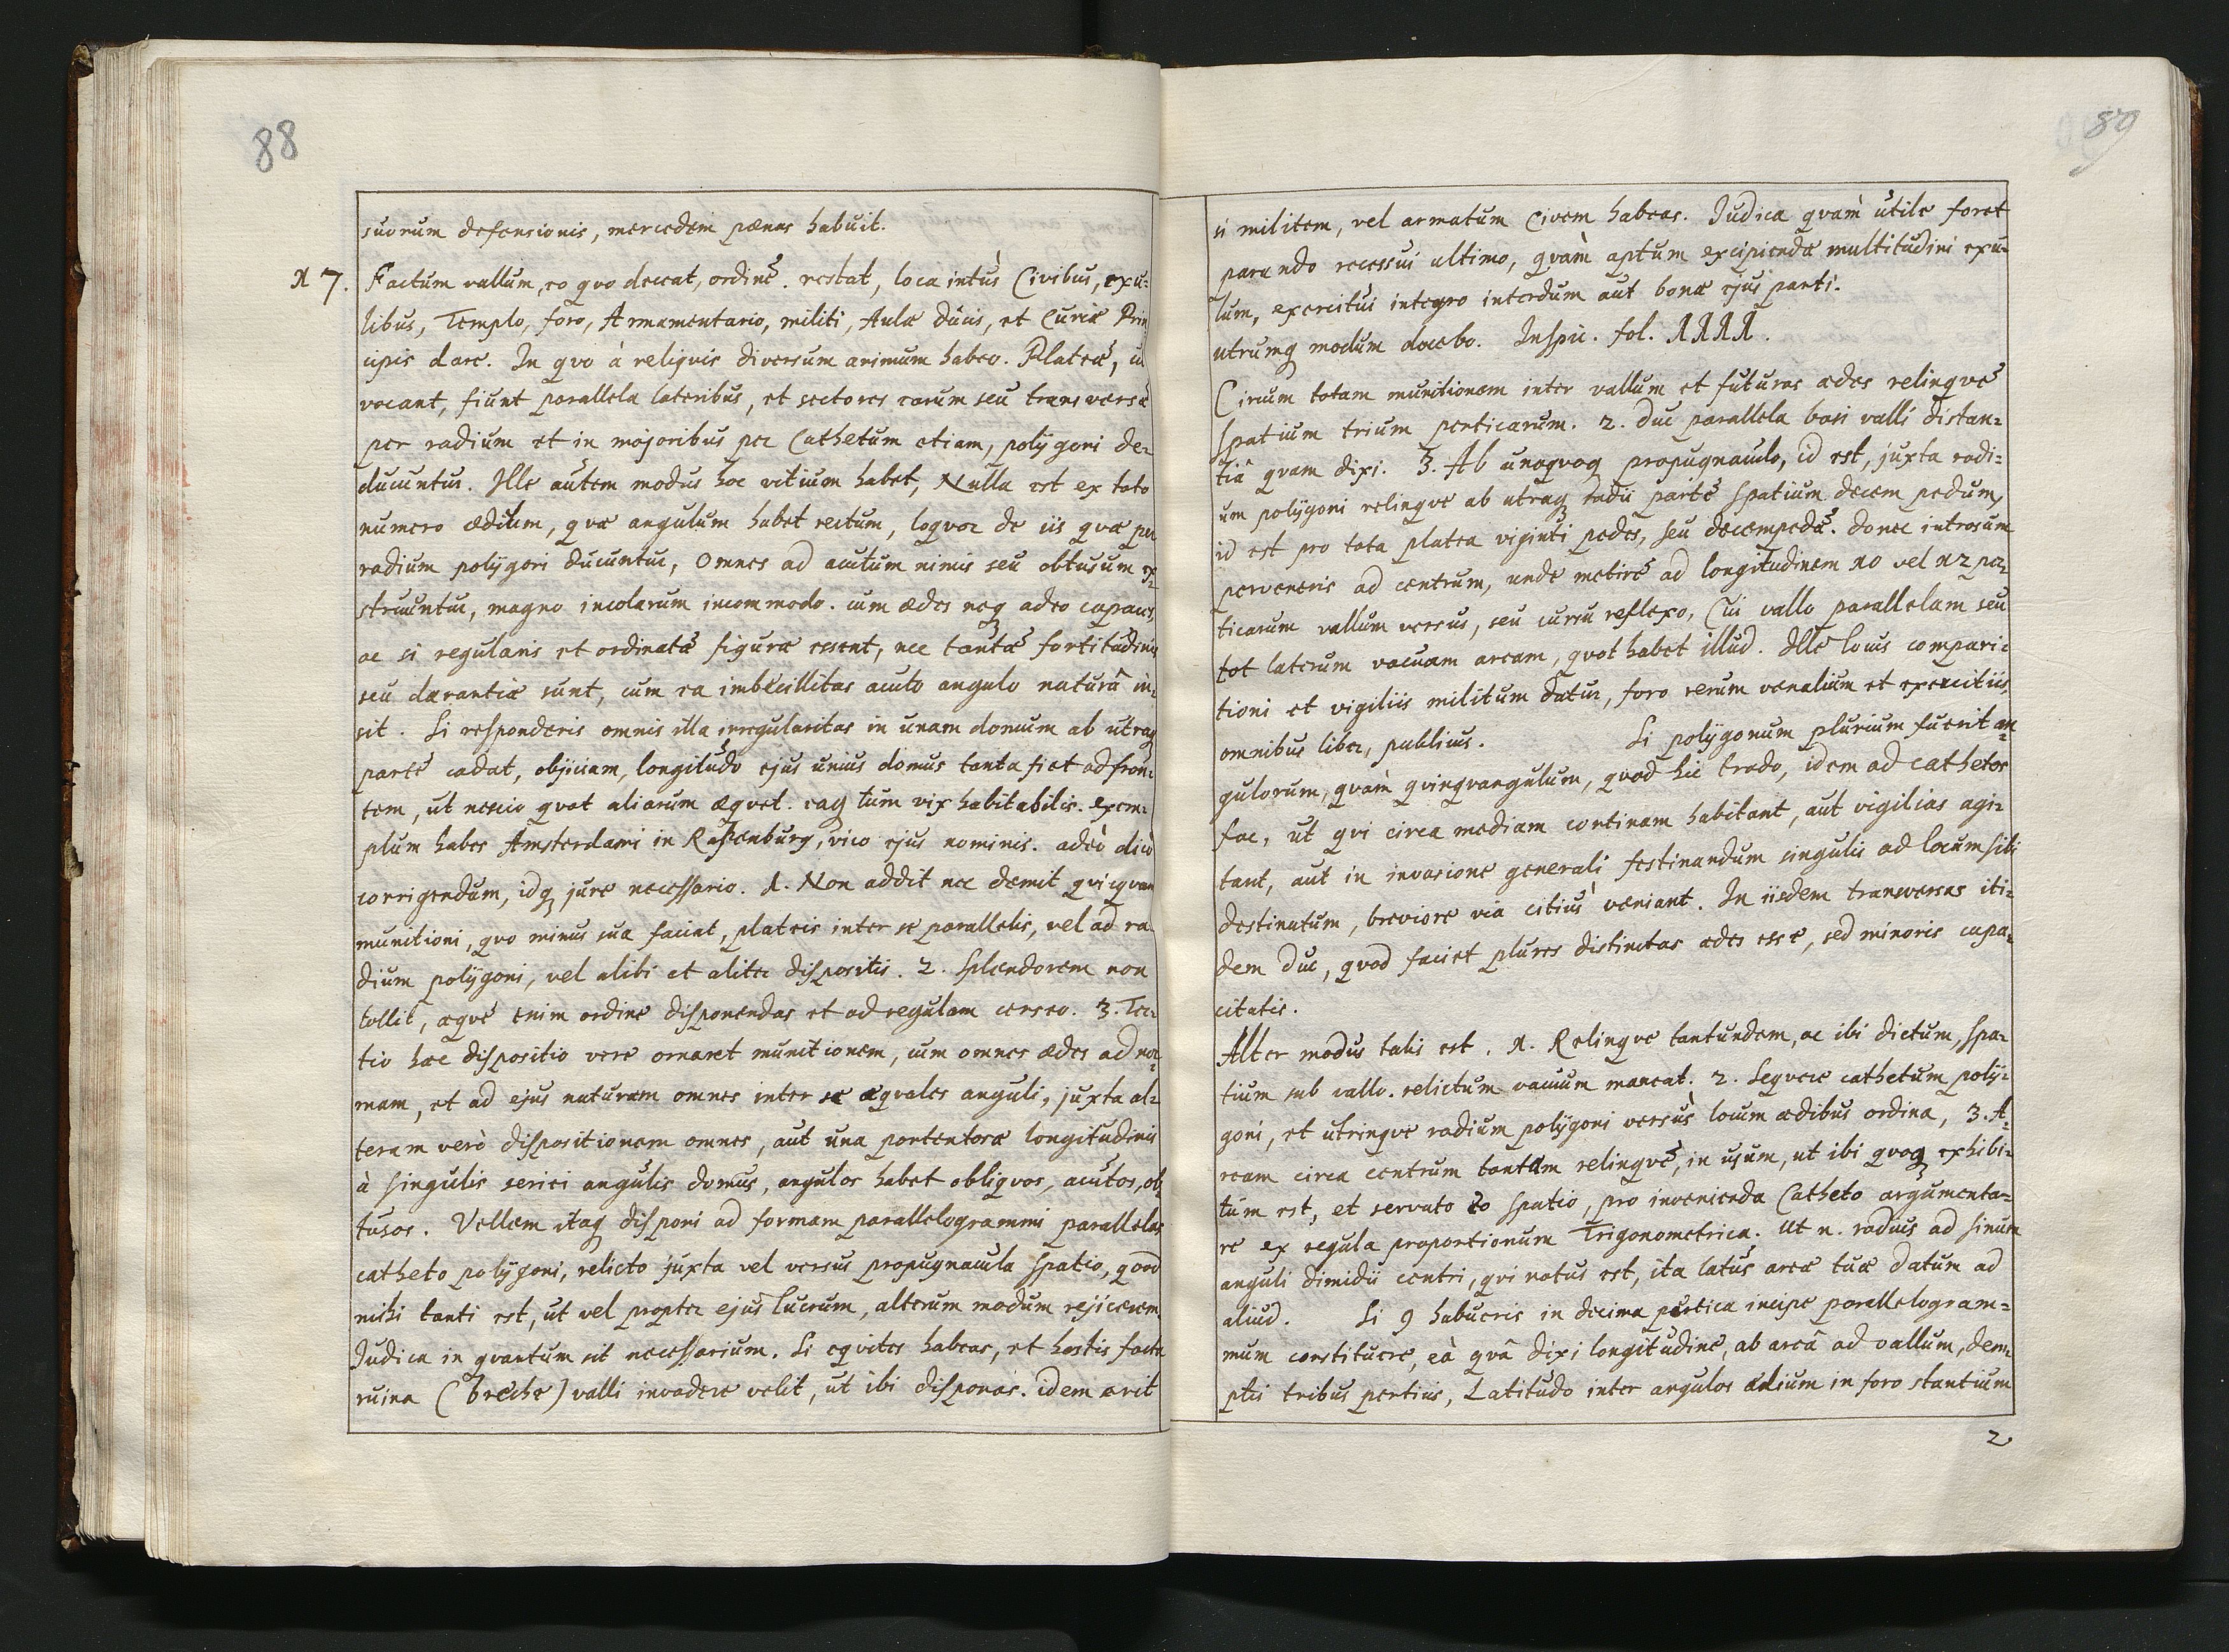 88
suorum defensionis, mercedem pænas habuit.
17. Factum vallum, eo qvo deceat, ordine. restat, loca intùs Civibus, exu=
libus, Templo, foro, Armamentario, militi, Aulæ ducis, et Curiæ Prin
cipis dare. In qvo à reliqvis diversum animum habeo. Plateæ, ut
vocant, fiunt parallela lateribus, et sectores earum seu transversæ
per radium et in majoribus per Cathetum etiam, polygoni de=
ducuntur. Ille autem modus hoc vitium habet, Nulla est ex toto
numero ædium, qvæ angulum habet rectum, loqvor de iis qvæ per
radium polygoni ducuntur, omnes ad acutum nimis seu obtusum ex=
struuntur, magno incolarum incommodo. cum ædes neq adeo capaces,
ac si regularis et ordinatæ figuræ essent, nec tantæ fortitudinis
seu durantiæ sunt, cum ea imbecillitas acuto angulo naturâ in=
sit. Si responderis omnis illa irregularitas in unam domum ab utraq
parte cadat, objiciam, longitudo ejus unius domus tanta fiet ad fron=
tem, ut nescio qvot aliarum æqvet. eaq tum vix habitabilis. exem=
plum habes Amsterdami in Raßenburg, vico ejus nominis. adeò dico
corrigendum, idq jure necessario. 1. Non addit nec demit qvicqvam
munitioni, qvo minus sua faciat, plateis inter se parallelis, vel ad ra
dium polygoni, vel alibi et aliter dispositis. 2. Splendorem non
tollit, æqve enim ordine disponendas et ad regulam censeo. 3. Ter=
tio hæc dispositio vere ornaret munitionem, cum omnes ædes ad nor=
mam, et ad ejus naturam omnes inter se æqvales anguli, juxta al=
teram verò dispositionem omnes, aut una portentosæ longitudinis
à singulis seriei angulis domus, angulos habet obliqvos, acutos, ob=
tusos. Vellem itaq disponi ad formam parallelogrammi parallelas
catheto polygoni, relicto juxta vel versus propugnacula spatio, qvod
mihi tanti est, ut vel propter ejus lucrum, alterum modum rejicerem.
Judica in qvantum sit necessarium. Si eqvites habeas, et hostis facta
ruina (breche) valli invadere velit, ut ibi disponas. idem erit
89
si militem, vel armatum Civem habeas. Judica qvam utile foret
parando recessui ultimo, qvàm aptum excipiendæ multitudini exu=
lum, exercitui integro interdum aut bonæ ejus parti.
utrumq modum docebo. Inspic. fol. 1111.
Circum totam munitionem inter vallum et futuras ædes relinqve
spatium trium perticarum. 2. Duc parallela basi valli distan=
tiâ qvam dixi. 3. Ab unoqvoq propugnaculo, id est, juxta radi=
um polygoni relinqve ab utraq radii parte spatium decem pedum,
id est pro tota platea viginti pedes, seu decempedæ. donec introrsum
perveneris ad centrum, unde metire ad longitudinem 10 vel 12 per=
ticarum vallum versus, seu cursu reflexo, Cui vallo parallelam seu
tot laterum vacuam aream, qvot habet illud. Ille locus compari=
tioni et vigiliis militum datur, foro rerum venalium et exercitiis,
omnibus liber, publicus. Si polygonum plurium fuerit an=
gulorum, qvàm qvinqvangulum, qvod hic trado, idem ad cathetos
fac, ut qvi circa mediam cortinam habitant, aut vigilias agi=
tant, aut in invasione generali festinandum singulis ad locum sibi
destinatum, breviore via citiùs veniant. In iisdem transversas iti=
dem duc, qvod faciet plures distinctas ædes esse, sed minoris capa=
citatis.
Alter modus talis est. 1. Relinqve tantundem, ac ibi dictum, spa=
tium sub vallo. relictum vacuum maneat. 2. Seqvere cathetum poly=
goni, et utrinqve radium polygoni versùs locum ædibus ordina, 3. A=
ream circa centrum tantam relinqve, in usum, ut ibi qvoq exhibi=
tum est, et servato eo spatio, pro invenienda Catheto argumenta=
re ex regula proportionum Trigonometrica. Ut n. radius ad sinum
anguli dimidii centri, qvi notus est, ita latus areæ tuæ datum ad
aliud. Si 9 habueris in decima pertica incipe parallelogram=
mum constituere, eà qvâ dixi longitudine, ab areâ ad vallum, dem=
ptis tribus perticis, Latitudo inter angulos ædium in foro stantium
2